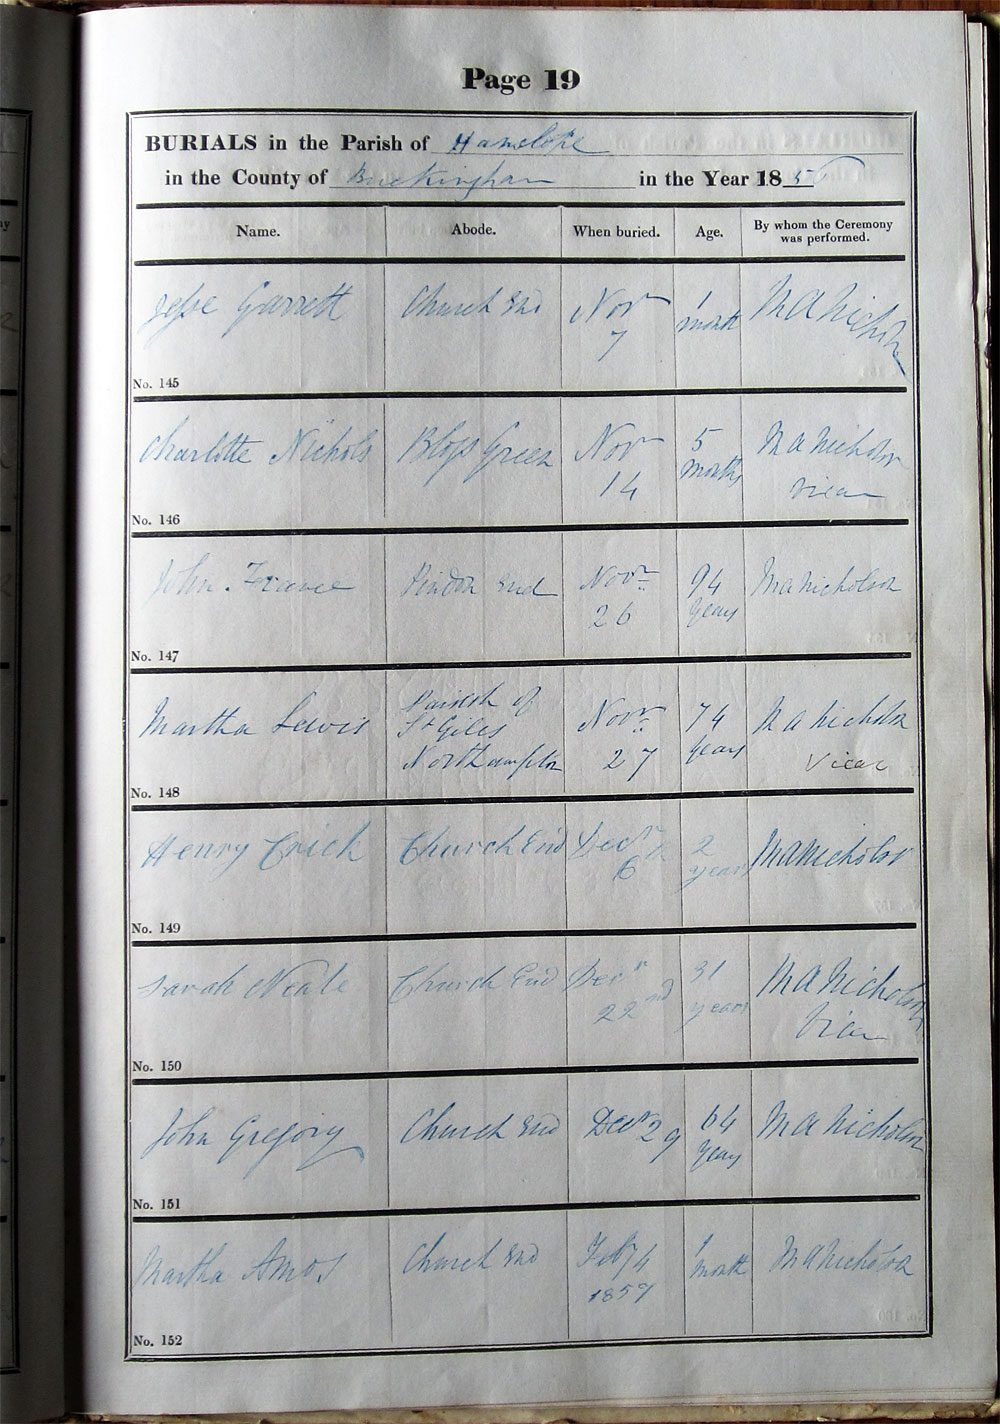 Page 19
BURIALS in the Parish of Hanslope
in the County of Buckingham in the Year 1856
Name. Abode. When buried. Age. By whom the Ceremony was performed.
Jesse Garrett Church End Novr 7 1 month M A Nicholson
No. 145
Charlotte Nichols Green Novr 14 5 months M A Nicholson Vicar
No. 146
John France Pindon End Novr 26 94 years M A Nicholson
No. 147
Martha Lewis Parish of St Giles Northampton Novr 27 74 years M A Nicholson Vicar
No. 148
Henry Church End Decr 6 2 years M A Nicholson
No. 149
Sarah Neale Church End Decr 22nd 31 years M A Nicholson Vicar
No. 150
John Gregory Church End Decr 29 64 years M A Nicholson
No. 151
Martha Amos Church End Feby 4 1857 1 month M A Nicholson
No. 152